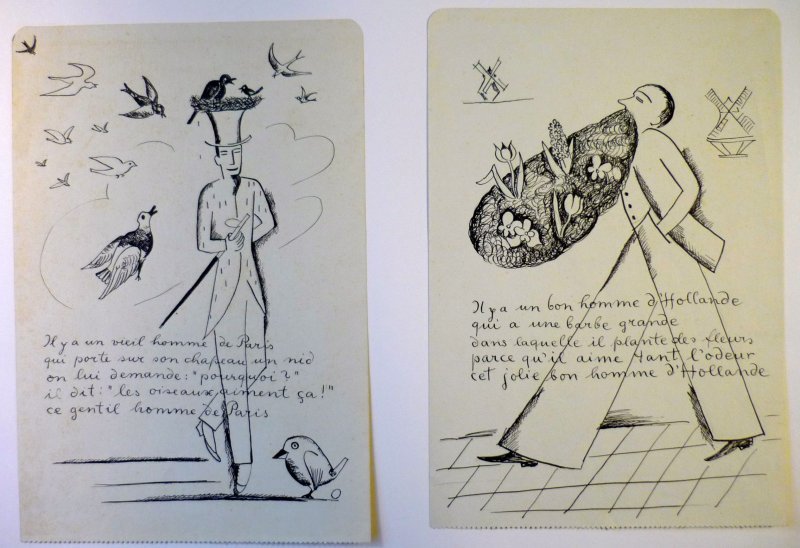 Il y a un vieil homme de Paris
qui porte sur son chapeau un nid
on lui demande: "pourquoi?"
il dit: "les oiseaux aiment ça!"
ce gentil homme de Paris
Il y a un bon homme d'Hollande
qui a une barbe grande
dans laquelle il plante des fleurs
parce qu'il aime tant l'odeur
cet jolie bon homme d'Hollande